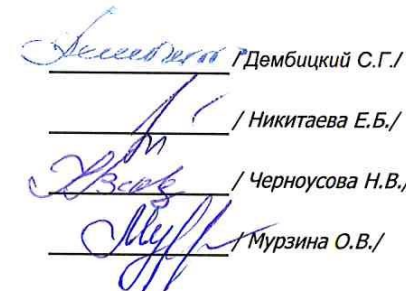 /Дембицкий С.Г./
/ Никитаева Е.Б./
/ Черноусова Н.В./
/ Мурзина О.В./